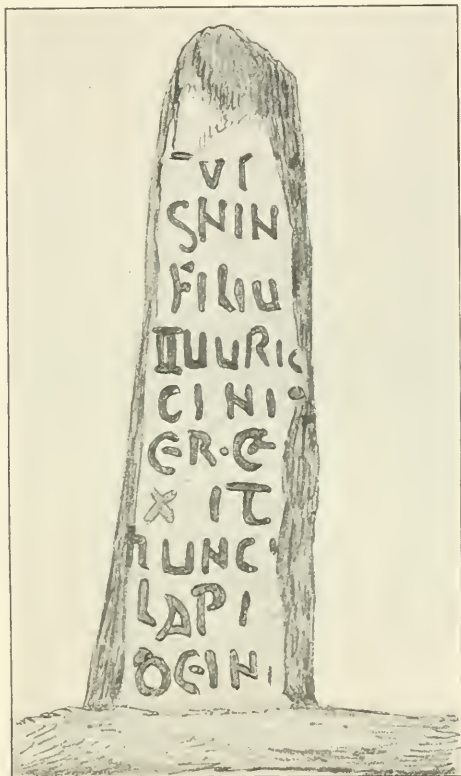 VI
SNIN
FILIU
IIUURIC
CINI
ER·E
XIT
hUNC
LAPI
DEIN